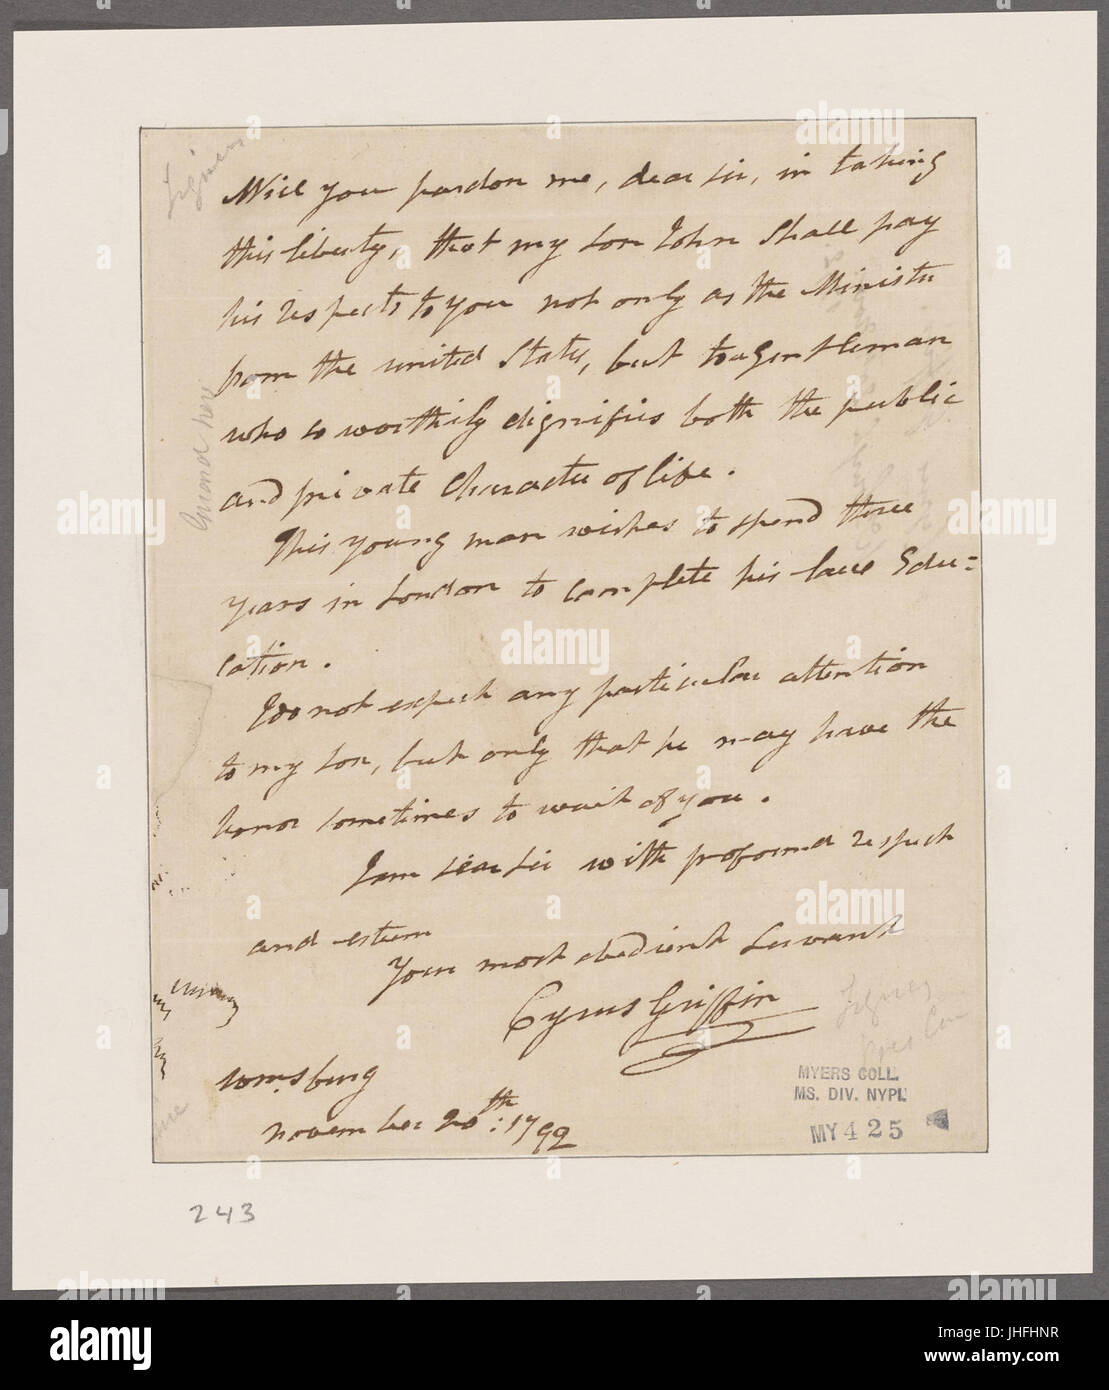 Will you pardon me, dear sir, in taking
this liberty, that my son John Shall pay
his respects to you not only as the Minister
from the united States, but to a gentleman
who so worthily dignifies both the public
and private Character of life.
This young man wishes to spend three
years in London to complete his law Edu=
cation.
I do not expect any particular attention
to my son, but only that he may have the
honor sometimes to wait of you.
I am dear sir with profound respect
and esteem
Your most obedient Servant
Cyrus Griffin
Wmsburg
november 20th: 1792
MYERS COLL.
MS. DIV. NYPL
MY 425
243
alamy stock photo
alamy
Image ID: JHFHNR
www.alamy.com